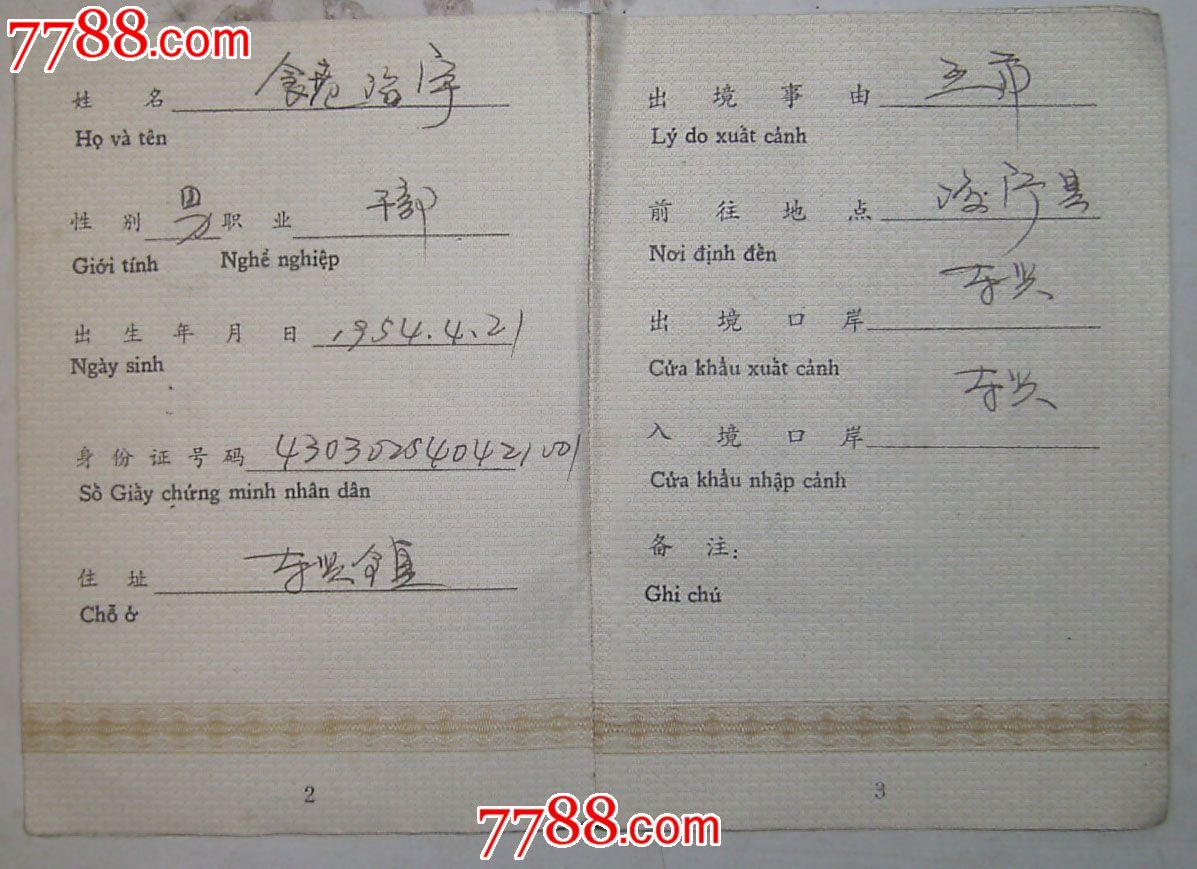 7788.com
姓 名
Họ và tên
性 别 男 职 业 干部
Giới tính Nghề nghiệp
出 生 年 月 日 1954.4.21
Ngày sinh
身份证号码 430302540421001
Số Giấy chứng minh nhân dân
住 址 东兴镇
Chỗ ở
2
出 境 事 由 互市
Lý do xuất cảnh
前 往 地 点
Nơi định đến
出 境 口 岸 东兴
Cửa khẩu xuất cảnh
入 境 口 岸 东兴
Cửa khẩu nhập cảnh
备 注：
Ghi chú
3
7788.com